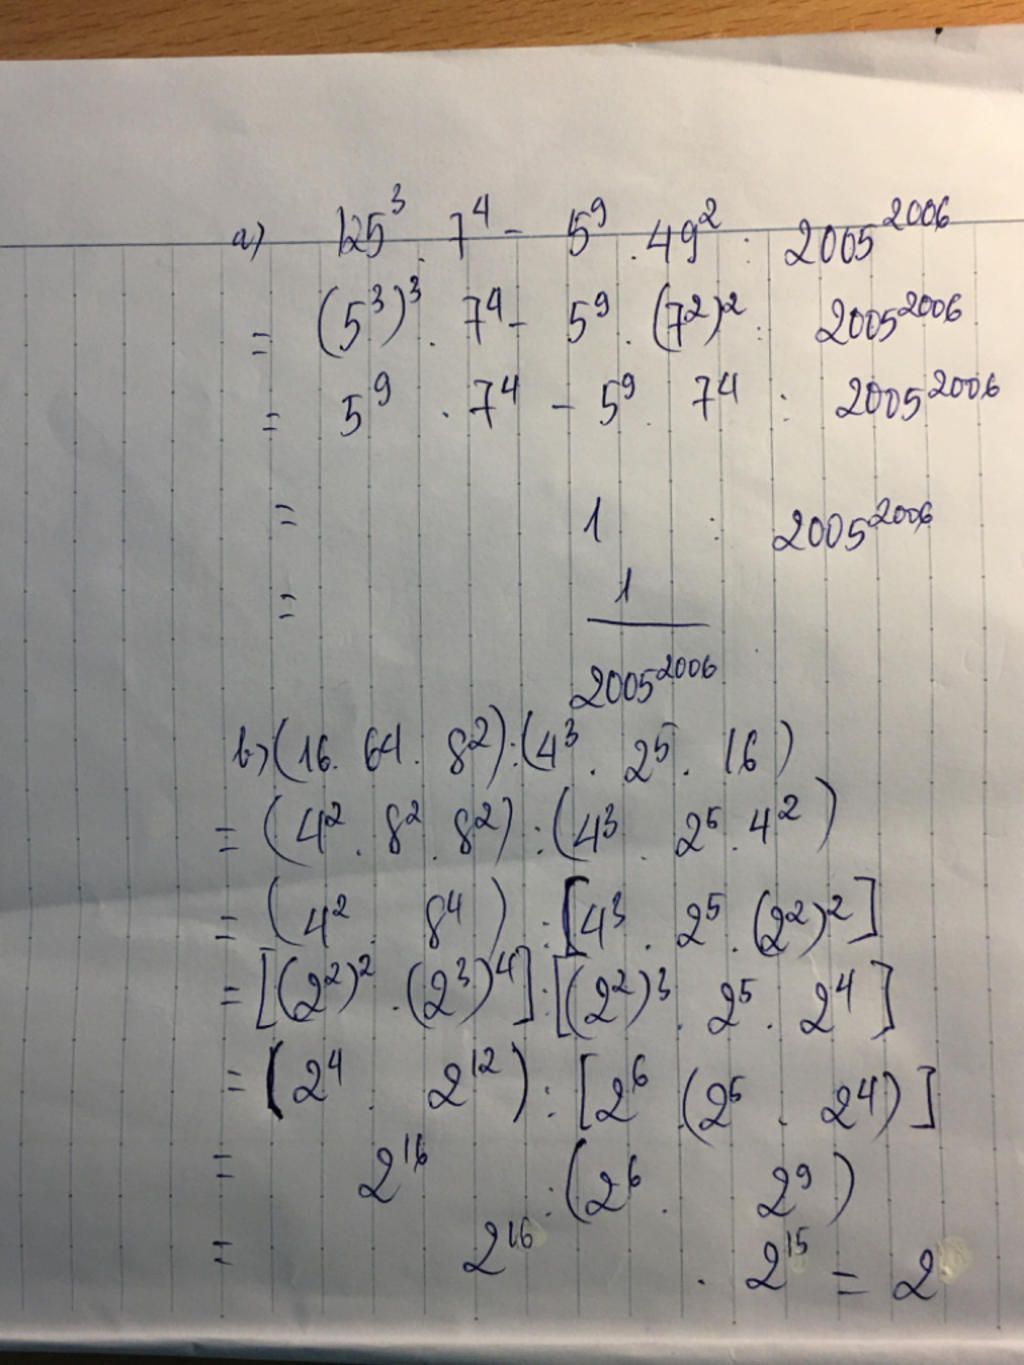 a) 125³ . 7⁴ - 5⁹ . 49² : 2005²⁰⁰⁶
= (5³)³ . 7⁴ - 5⁹ . (7²)² : 2005²⁰⁰⁶
= 5⁹ . 7⁴ - 5⁹ . 7⁴ : 2005²⁰⁰⁶
= 1 : 2005²⁰⁰⁶
= 1
2005²⁰⁰⁶
b) (16 . 64 . 8²) : (4³ . 2⁵ . 16)
= (4² . 8² . 8²) : (4³ . 2⁵ . 4²)
= (4² . 8⁴) : [4³ . 2⁵ . (2²)²]
= [(2²)² . (2³)⁴] : [(2²)³ . 2⁵ . 2⁴]
= (2⁴ . 2¹²) : [2⁶ (2⁵ . 2⁴)]
= 2¹⁶ : (2⁶ . 2⁹)
= 2¹⁶ . 2¹⁵ = 2